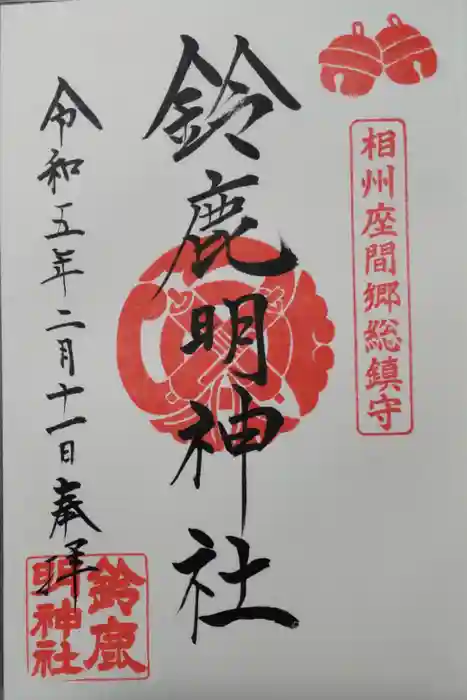 相州座間郷総鎮守
鈴鹿明神社
令和五年二月十一日奉拝
鈴鹿
明神社